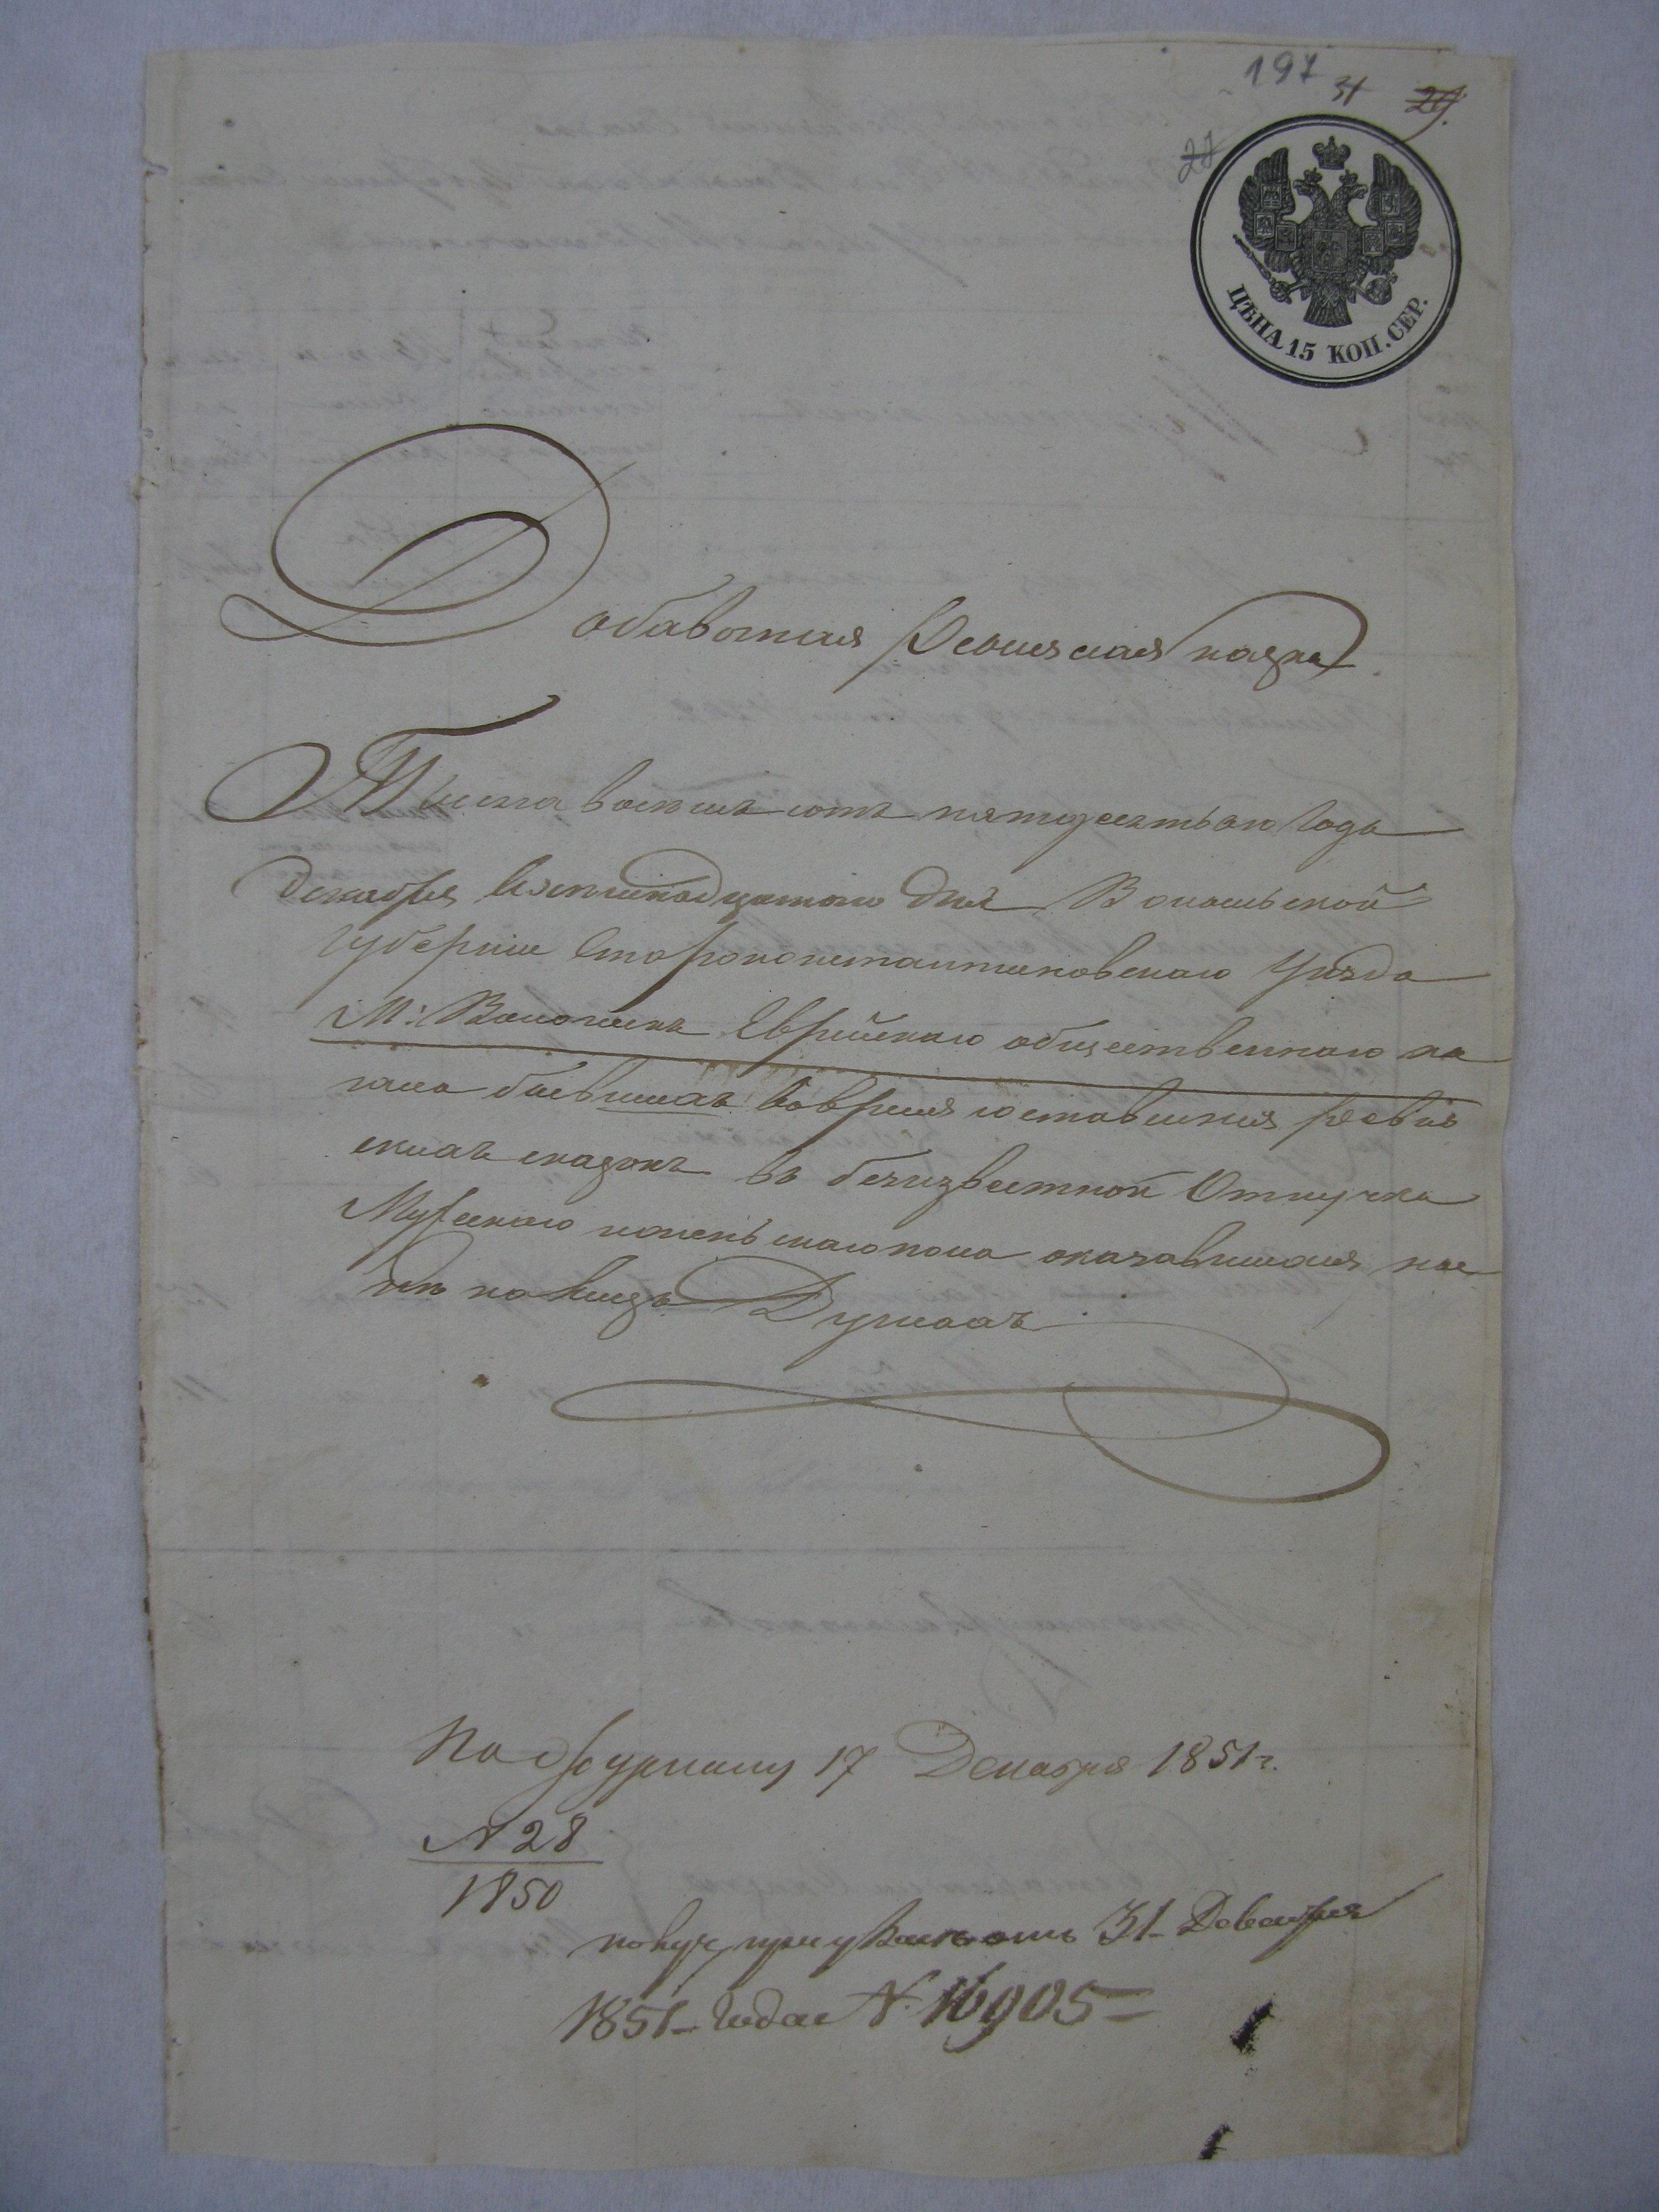 197 31 29.
27
ЦѢНА 15 КОП. СЕР.
Добавочная Ревизская сказка
Тысяча восемь сотъ пятдесятаго года
Декабря дня Волынской
Губерніи Староконстантиновскаго Уѣзда
М: Еврейскаго общественнаго ка
гала бывшихъ вовремя составленія ревиз
скихъ сказокъ въ безизвестной Отлучки
Мужескаго и женскаго пола оказавшихся
на лицѣ Душахъ
По журналу 17 Декабря 1851 г.
N 28
1850
получ. при 31 Декабря
1851 года N. 16905